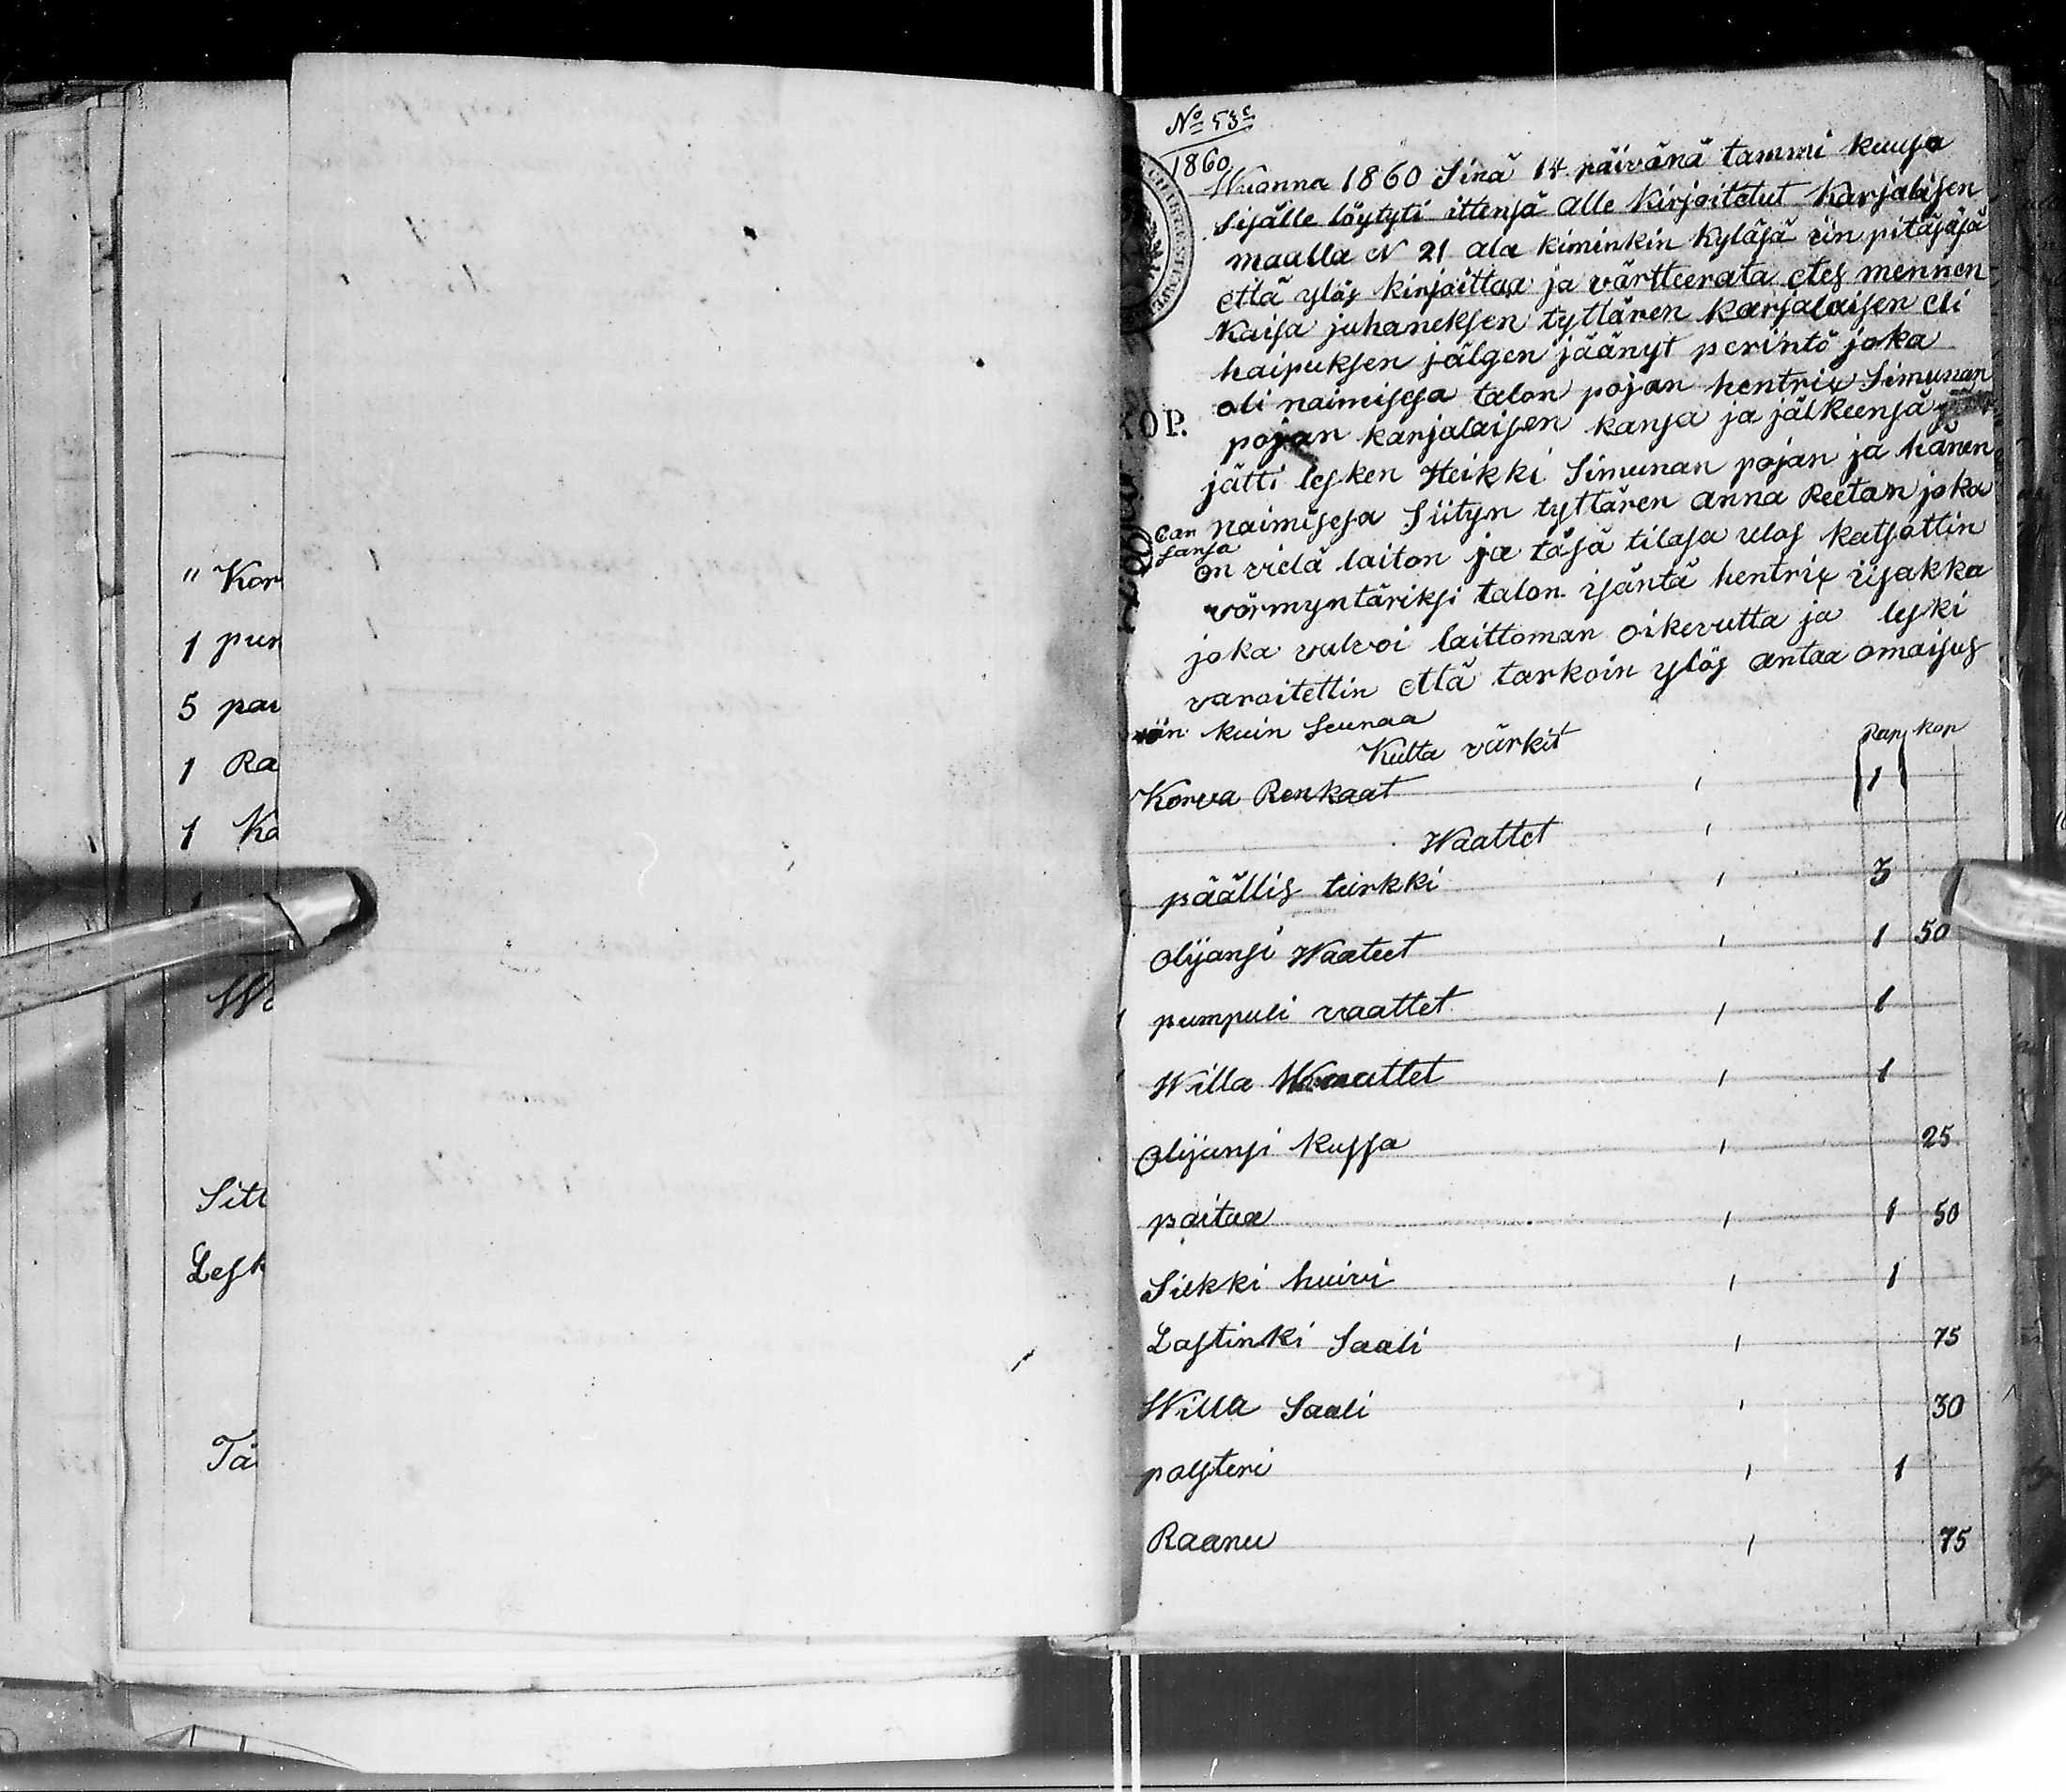 " Kor
1 pun
5 pai
1 Ra
1 Ka
Wa
Sitt
Lesk
Tä
No 53
1860
KOP.
Wuonna 1860 Sinä 14 päivänä tammi kuusa
Sisälle löytyti ittensä alle Kirjoitetut Karjalaisen
maalla N 21 ala kiminkin Kyläsä iin pitäjäsä
että ylös kirjoittaa ja värtteerata etes mennen
Kaisa juhaneksen tyttären karjalaisen eli
haipuksen jälgen jäänyt perintö joka
oli naimisesa talon pojan hentrix Simunan
pojan karjalaisen kansa ja jälkeensä
jätti lesken Heikki Simunan pojan ja hänen
can sansa naimisesa Siityn tyttären anna Reetan joka
on vielä laiton ja täsä tilasa ulos katsottin
vörmyntäriksi talon isäntä hentrix iisakka
joka valvoi laittoman oikevutta ja leski
varoitettin että tarkoin ylös antaa omaisus
niin kuin Seuraa
Kulta värkit Rup kop
Korva Renkaat 1 1
Waattet
päällis turkki 1 3
Olijansi Waateet 1 1 50
pumpuli vaattet 1 1
Willa Waattet 1 1
Olijansi Kussa 1 25
paitaa 1 1 50
Silkki huivi 1 1
Lastinki Saali 1 75
Willa Saali 1 30
polsteri 1 1
Raanu 1 75